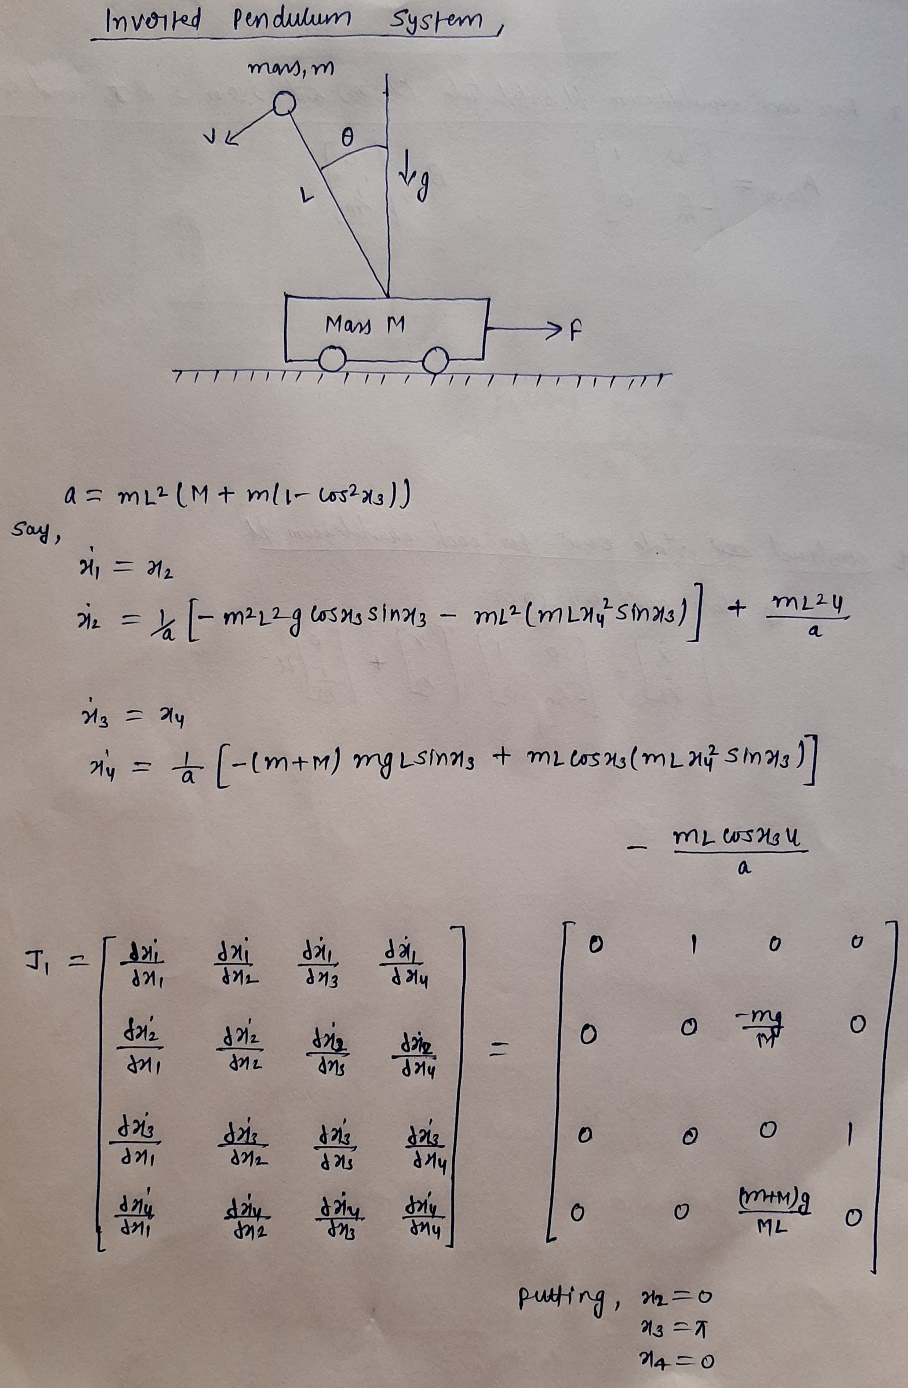 Inverted Pendulum System,
mass, m
V
θ
L
↓g
Mass M
F
a = mL²(M + m(1 - cos²x₃))
Say,
ẋ₁ = x₂
ẋ₂ = 1/a [- m²L²g cosx₃ sinx₃ - mL²(mLx₄² sinx₃)] + mL²u/a
ẋ₃ = x₄
ẋ₄ = 1/a [-(m+M) mgL sinx₃ + mL cosx₃(mL x₄² sinx₃)]
- mL cosx₃ u/a
J₁ = [ dẋ₁/dx₁ dẋ₁/dx₂ dẋ₁/dx₃ dẋ₁/dx₄ = [ 0 1 0 0
dẋ₂/dx₁ dẋ₂/dx₂ dẋ₂/dx₃ dẋ₂/dx₄ 0 0 -mg/M 0
dẋ₃/dx₁ dẋ₃/dx₂ dẋ₃/dx₃ dẋ₃/dx₄ 0 0 0 1
dẋ₄/dx₁ dẋ₄/dx₂ dẋ₄/dx₃ dẋ₄/dx₄ ] 0 0 (m+M)g/ML 0 ]
putting, x₂ = 0
x₃ = π
x₄ = 0